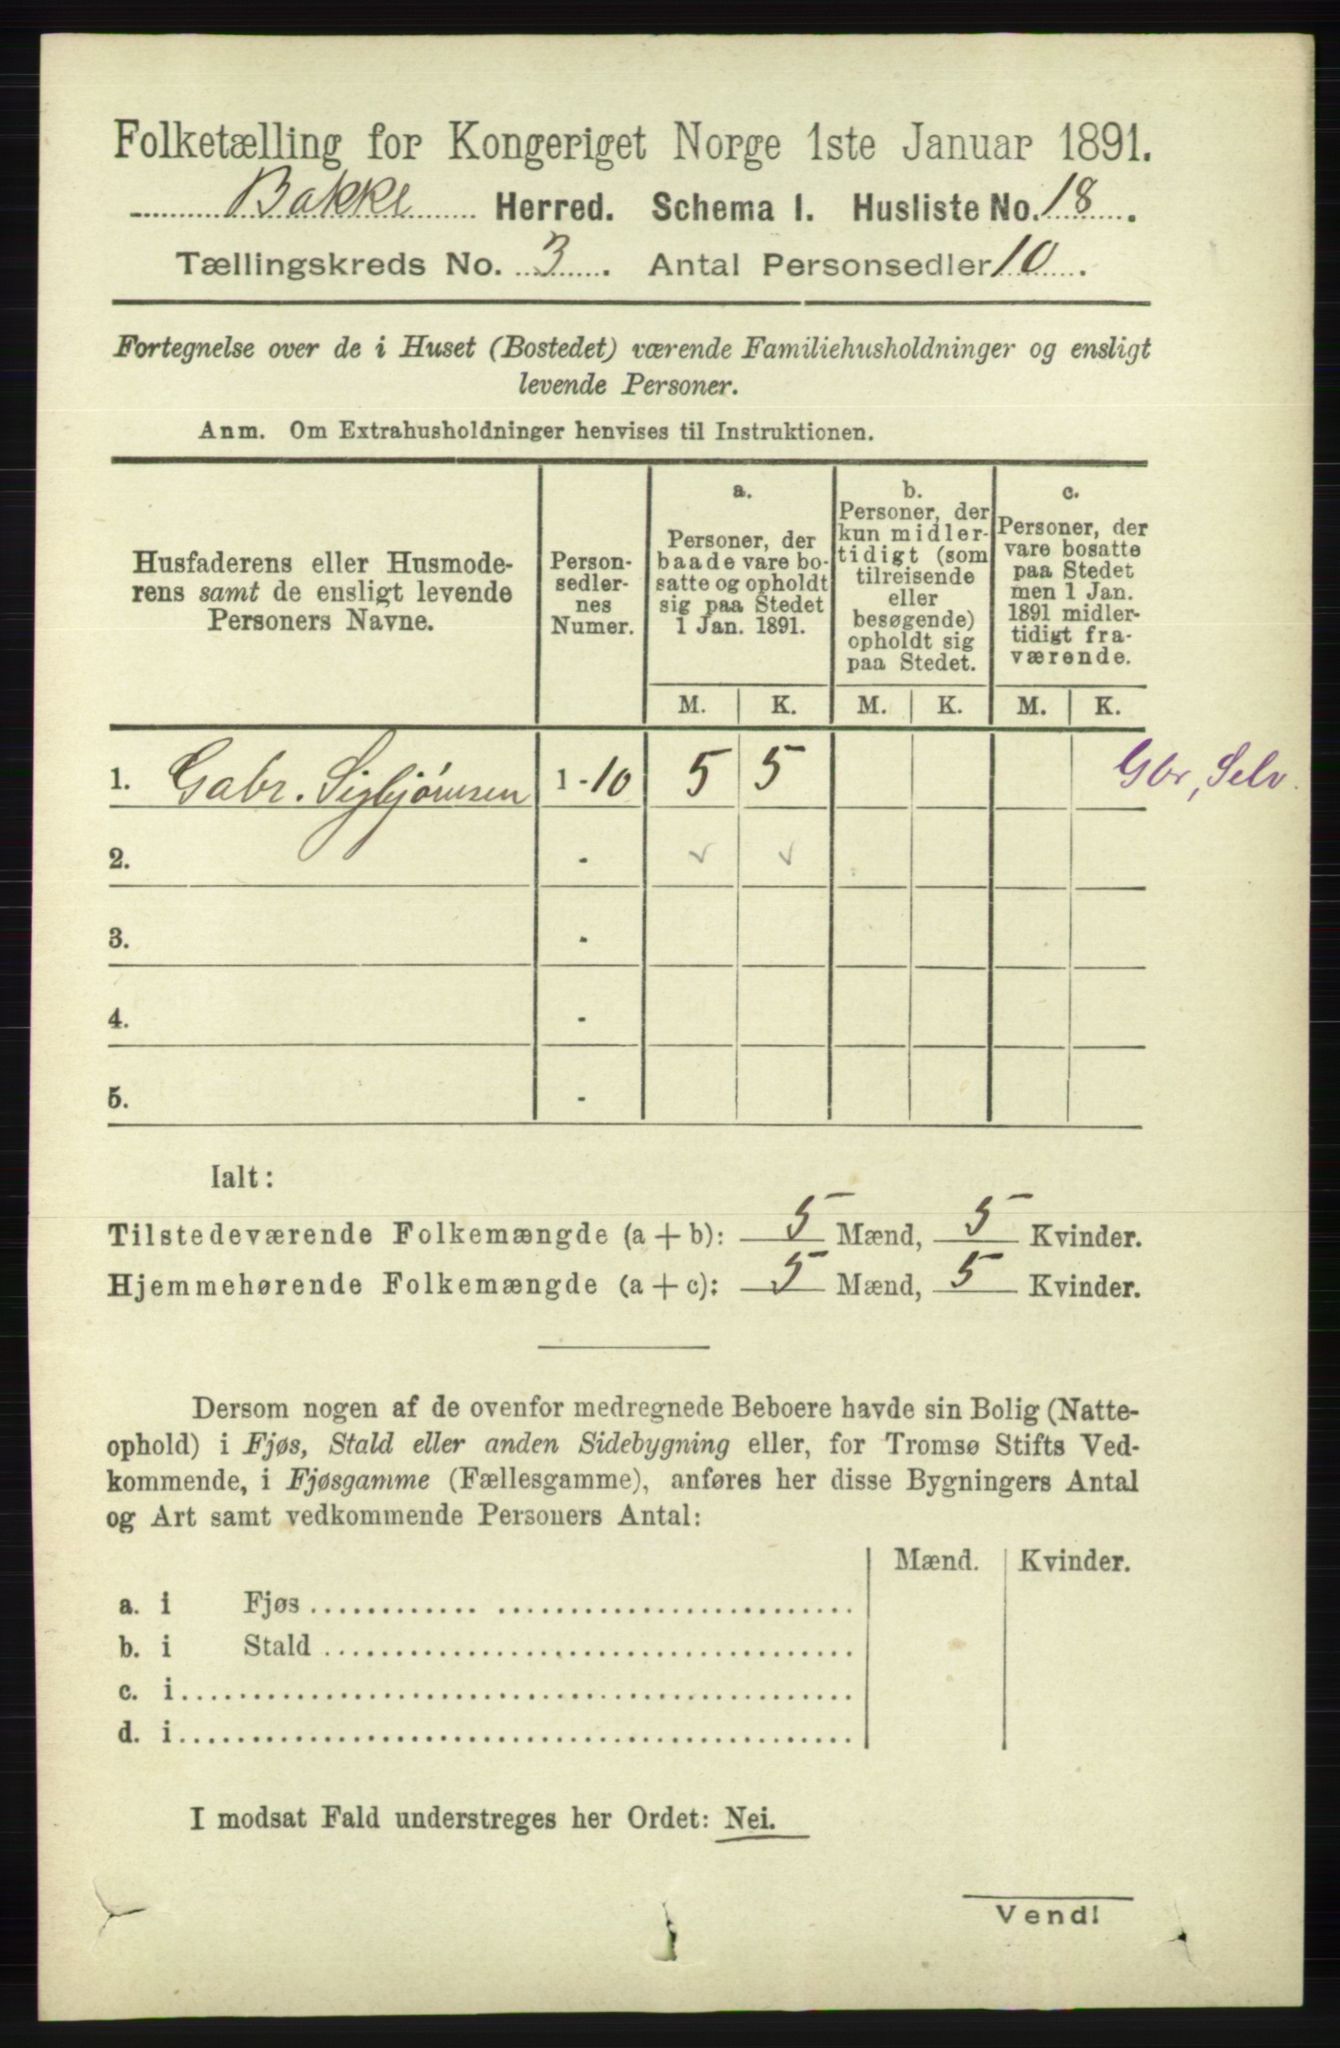 Folketælling for Kongeriget Norge 1ste Januar 1891.
Bakke Herred. Schema I. Husliste No. 18.
Tællingskreds No. 3. Antal Personsedler 10.
Fortegnelse over de i Huset (Bostedet) værende Familiehusholdninger og ensligt
levende Personer.
Anm. Om Extrahusholdninger henvises til Instruktionen.
Husfaderens eller Husmode-
rens samt de ensligt levende
Personers Navne.
Person-
sedler-
nes
Numer.
a.
Personer, der
baade vare bo-
satte og opholdt
sig paa Stedet
1 Jan. 1891.
b.
Personer, der
kun midler-
tidigt (som
tilreisende
eller
besøgende)
opholdt sig
paa Stedet.
c.
Personer, der
vare bosatte
paa Stedet
men 1 Jan.
1891 midler-
tidigt fra-
værende.
M. K. M. K. M. K.
1. Gabr. Sigbjørnsen 1 - 10 5 5 Gbr, Selv.
2. -
3. -
4. -
5. -
Ialt:
Tilstedeværende Folkemængde (a + b): 5 Mænd, 5 Kvinder.
Hjemmehørende Folkemængde (a + c): 5 Mænd, 5 Kvinder.
Dersom nogen af de ovenfor medregnede Beboere havde sin Bolig (Natte-
ophold) i Fjøs, Stald eller anden Sidebygning eller, for Tromsø Stifts Ved-
kommende, i Fjøsgamme (Fællesgamme), anføres her disse Bygningers Antal
og Art samt vedkommende Personers Antal:
Mænd. Kvinder.
a. i Fjøs
b. i Stald
c. i
d. i
I modsat Fald understreges her Ordet: Nei.
Vend!